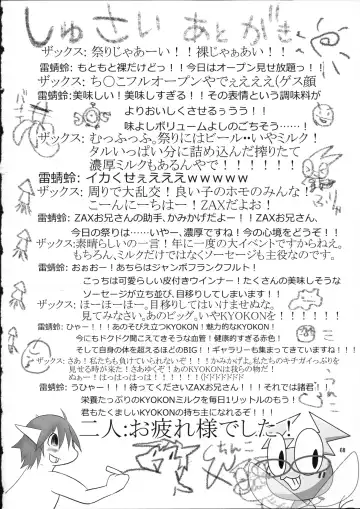 しゅさい あとがき
ザックス: 祭りじゃあーい！！裸じゃぁあい！！
雷蜻蛉: もともと裸だけどっ！！今日はオープン見せ放題っ！！
ザックス: ち〇こフルオープンやでぇええぇ(ゲス顔
雷蜻蛉: 美味しい！美味しすぎる！！その表情という調味料が
よりおいしくさせるぅうう！！
味よしボリュームよしのごちそう…！！
ザックス: むっふっふ。祭りにはビール・・いやミルク！
タルいっぱい分に詰め込んだ搾りたて
濃厚ミルクもあるんやで！！！！！！
雷蜻蛉: イカくせぇえええｗｗｗｗｗ
ザックス: 周りで大乱交！良い子のホモのみんな！
こーんにーちはー！ZAXだよお！
雷蜻蛉: ZAXお兄さんの助手、かみかげだよー！！ZAXお兄さん、
今日の祭りは……いやー、濃厚ですね！今の心境をどうぞ！！
ザックス: 素晴らしいの一言！年に一度の大イベントですからねえ。
もちろん、ミルクだけではなくソーセージも主役なのです。
雷蜻蛉: おぉおー！あちらはジャンボフランクフルト！
こっちは可愛らしい皮付きウインナー！たくさんの美味しそうな
ソーセージが立ち並び、目移りしてしまいます！
ザックス: ほーほーほー。目移りしてはいけませぬな。
見てみなさい。あのビッグ。いやKYOKONを！！！！
雷蜻蛉: ひゃー！！！あのそびえ立つKYOKON！魅力的なKYOKON！
今にもドクドク聞こえてきそうな血管！健康的すぎる赤色！
そして自身の体を超えるほどのBIG！！ギャラリーも集まってきていますね！！！
ザックス: さあ！私たちも負けていられないぞ！！！かみかげよ。私たちのキチガイっぷりを
見せる時が来た！さあゆくぞ！あのKYOKONは我らの物だ！
ぬぁー！はっはっはっは！！！！！！(ドドドドドド
雷蜻蛉: うひゃー！！！待ってくださいZAXお兄さん！！！それでは諸君！！
栄養たっぷりのKYOKONミルクを毎日1リットルのもう！
君もたくましいKYOKONの持ち主になれるぞ！！！
二人:お疲れ様でした！
ちんこ